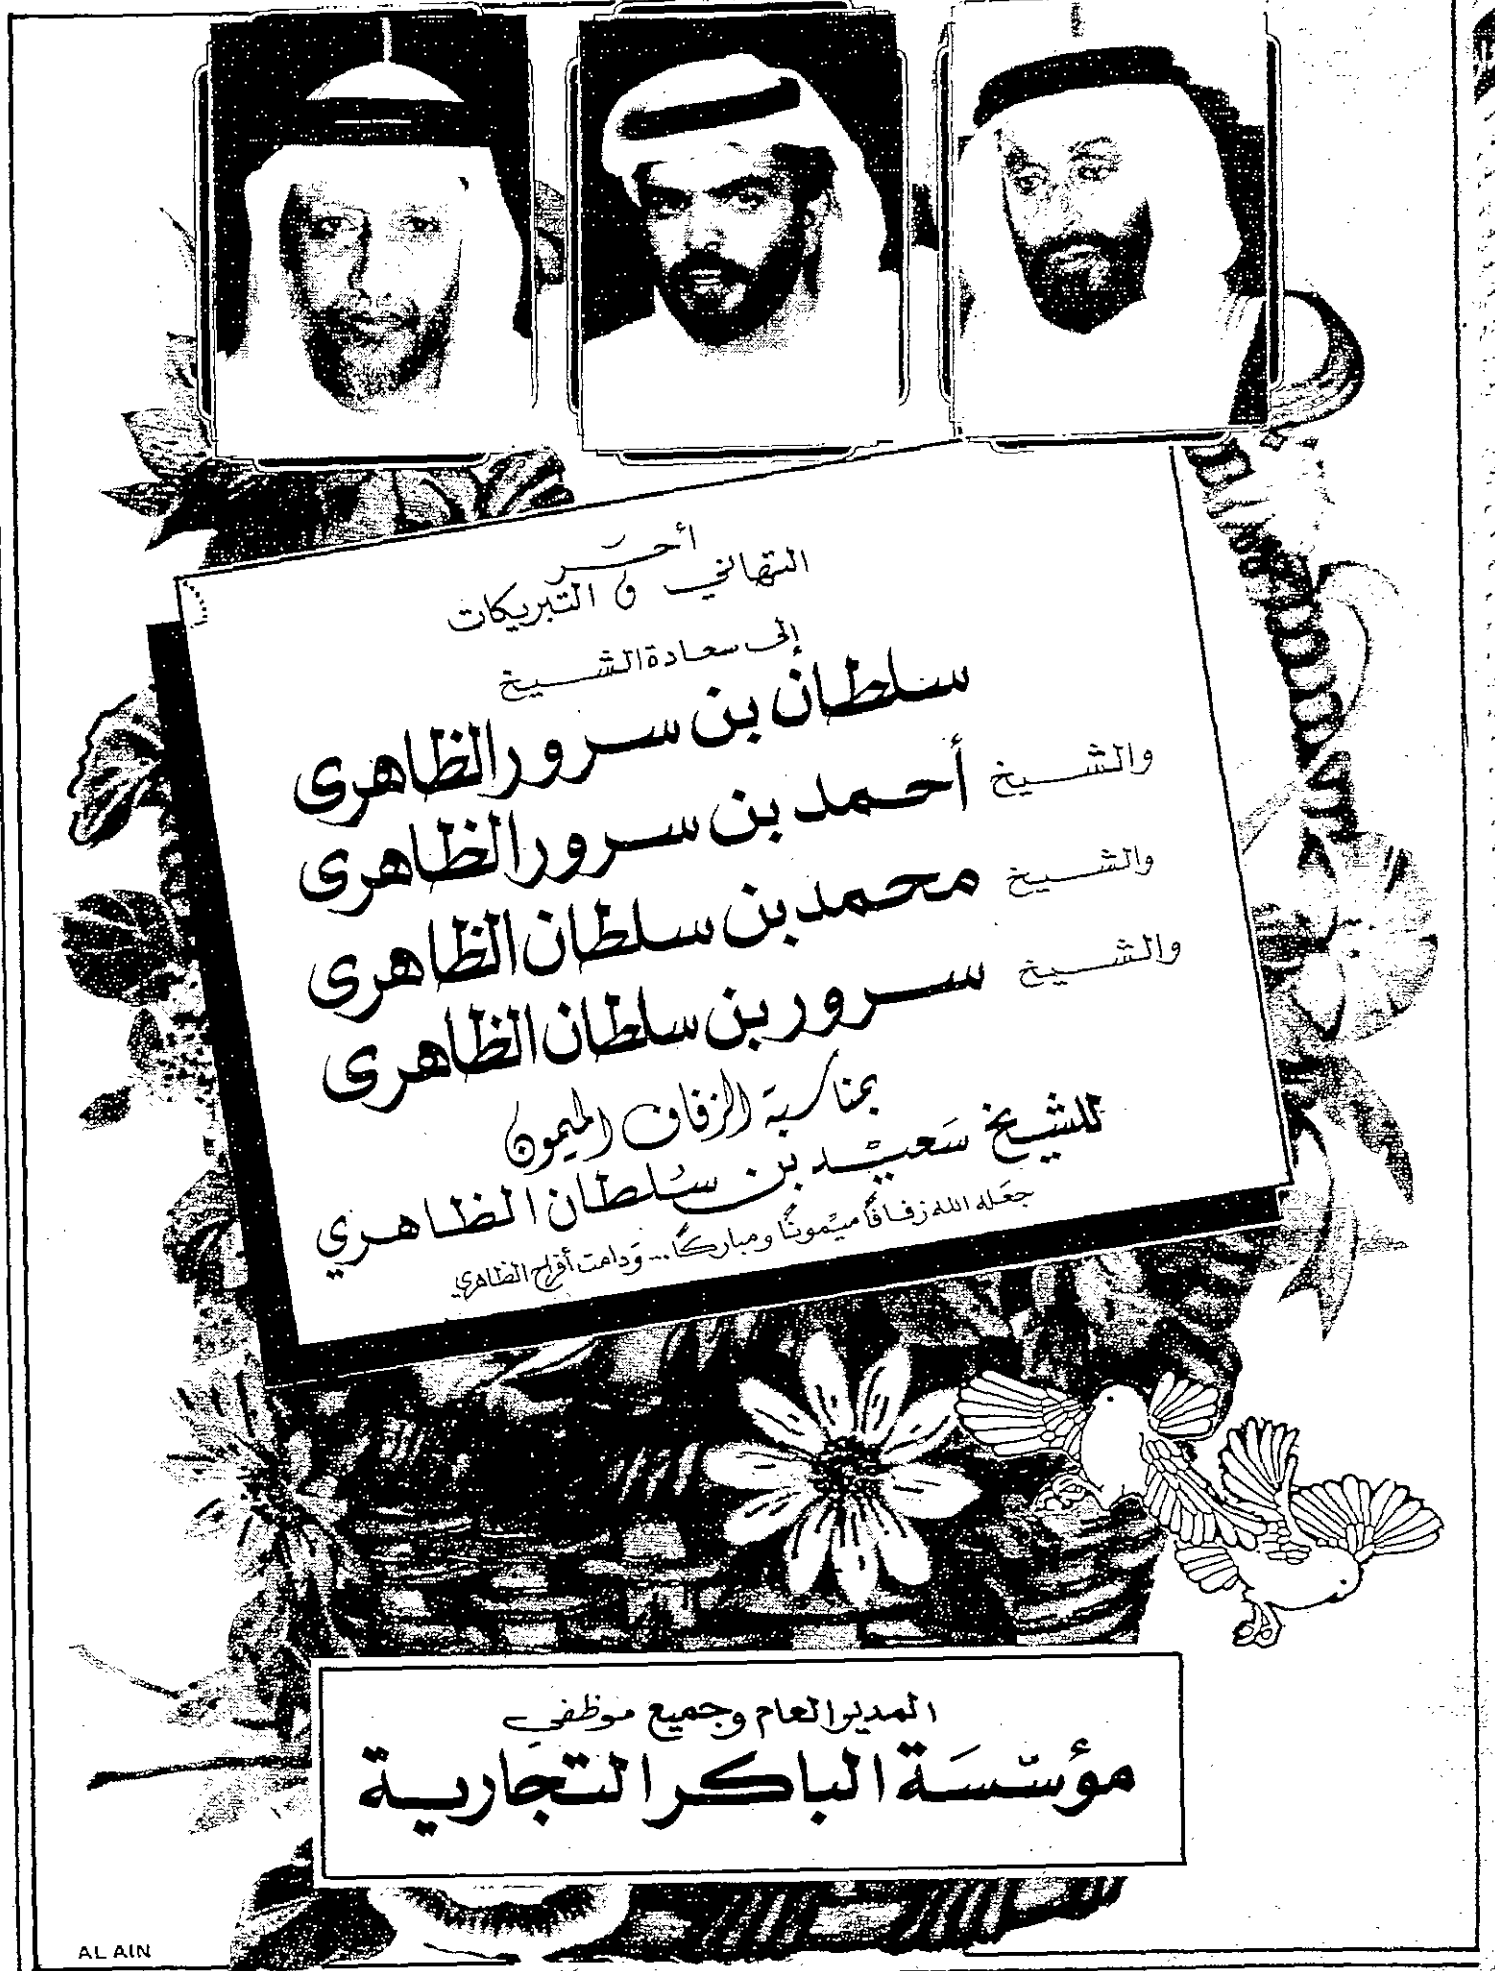 أحَـــر
التهاني و التبريكات
إلى سعادة الشـــيخ
سلطان بن سرور الظاهرى
والشـــيخ أحمد بن سرور الظاهرى
والشـــيخ محمد بن سلطان الظاهرى
والشـــيخ سرور بن سلطان الظاهرى
بمناسبة الزفاف الميمون
للشيخ سَعيْد بن سُلطان الظاهري
جعَله الله زفافًا ميْمونًا ومباركًا... وَدامت أفراح الظاهري
المدير العام وجميع موظفي
مؤسّسَة الباكر التجارية
AL AIN